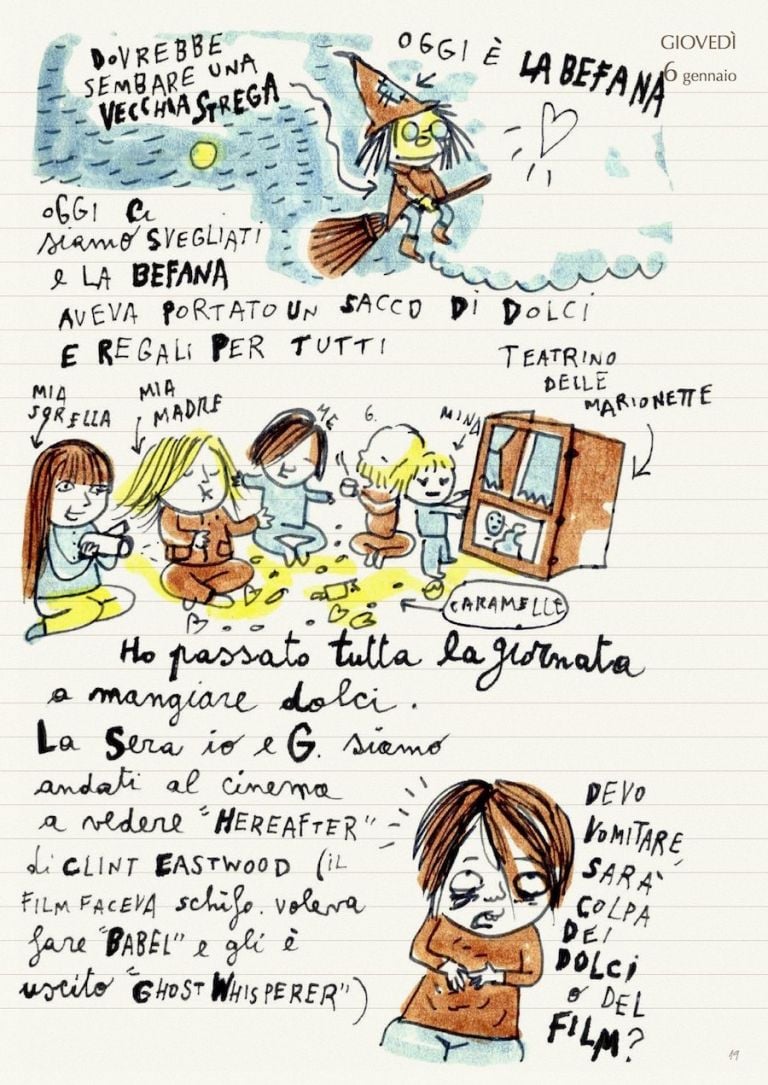 GIOVEDÌ
6 gennaio
DOVREBBE
SEMBARE UNA
VECCHIA STREGA
OGGI È LA BEFANA
OGGI Ci
siamo SVEGLIATI
e LA BEFANA
AVEVA PORTATO UN SACCO DI DOLCI
E REGALI PER TUTTI
TEATRINO
DELLE
MARIONETTE
MIA
SORELLA
MIA
MADRE
ME
G.
MINA
CARAMELLE
Ho passato tutta la giornata
a mangiare dolci.
La Sera io e G. siamo
andati al cinema
a vedere "HEREAFTER"
di CLINT EASTWOOD (iL
FILM FACEVA schifo. voleva
fare "BABEL" e gli è
uscito "GHOST WHISPERER")
DEVO
VOMITARE,
SARA'
COLPA
DEI
DOLCi
o DEL
FILM?
19